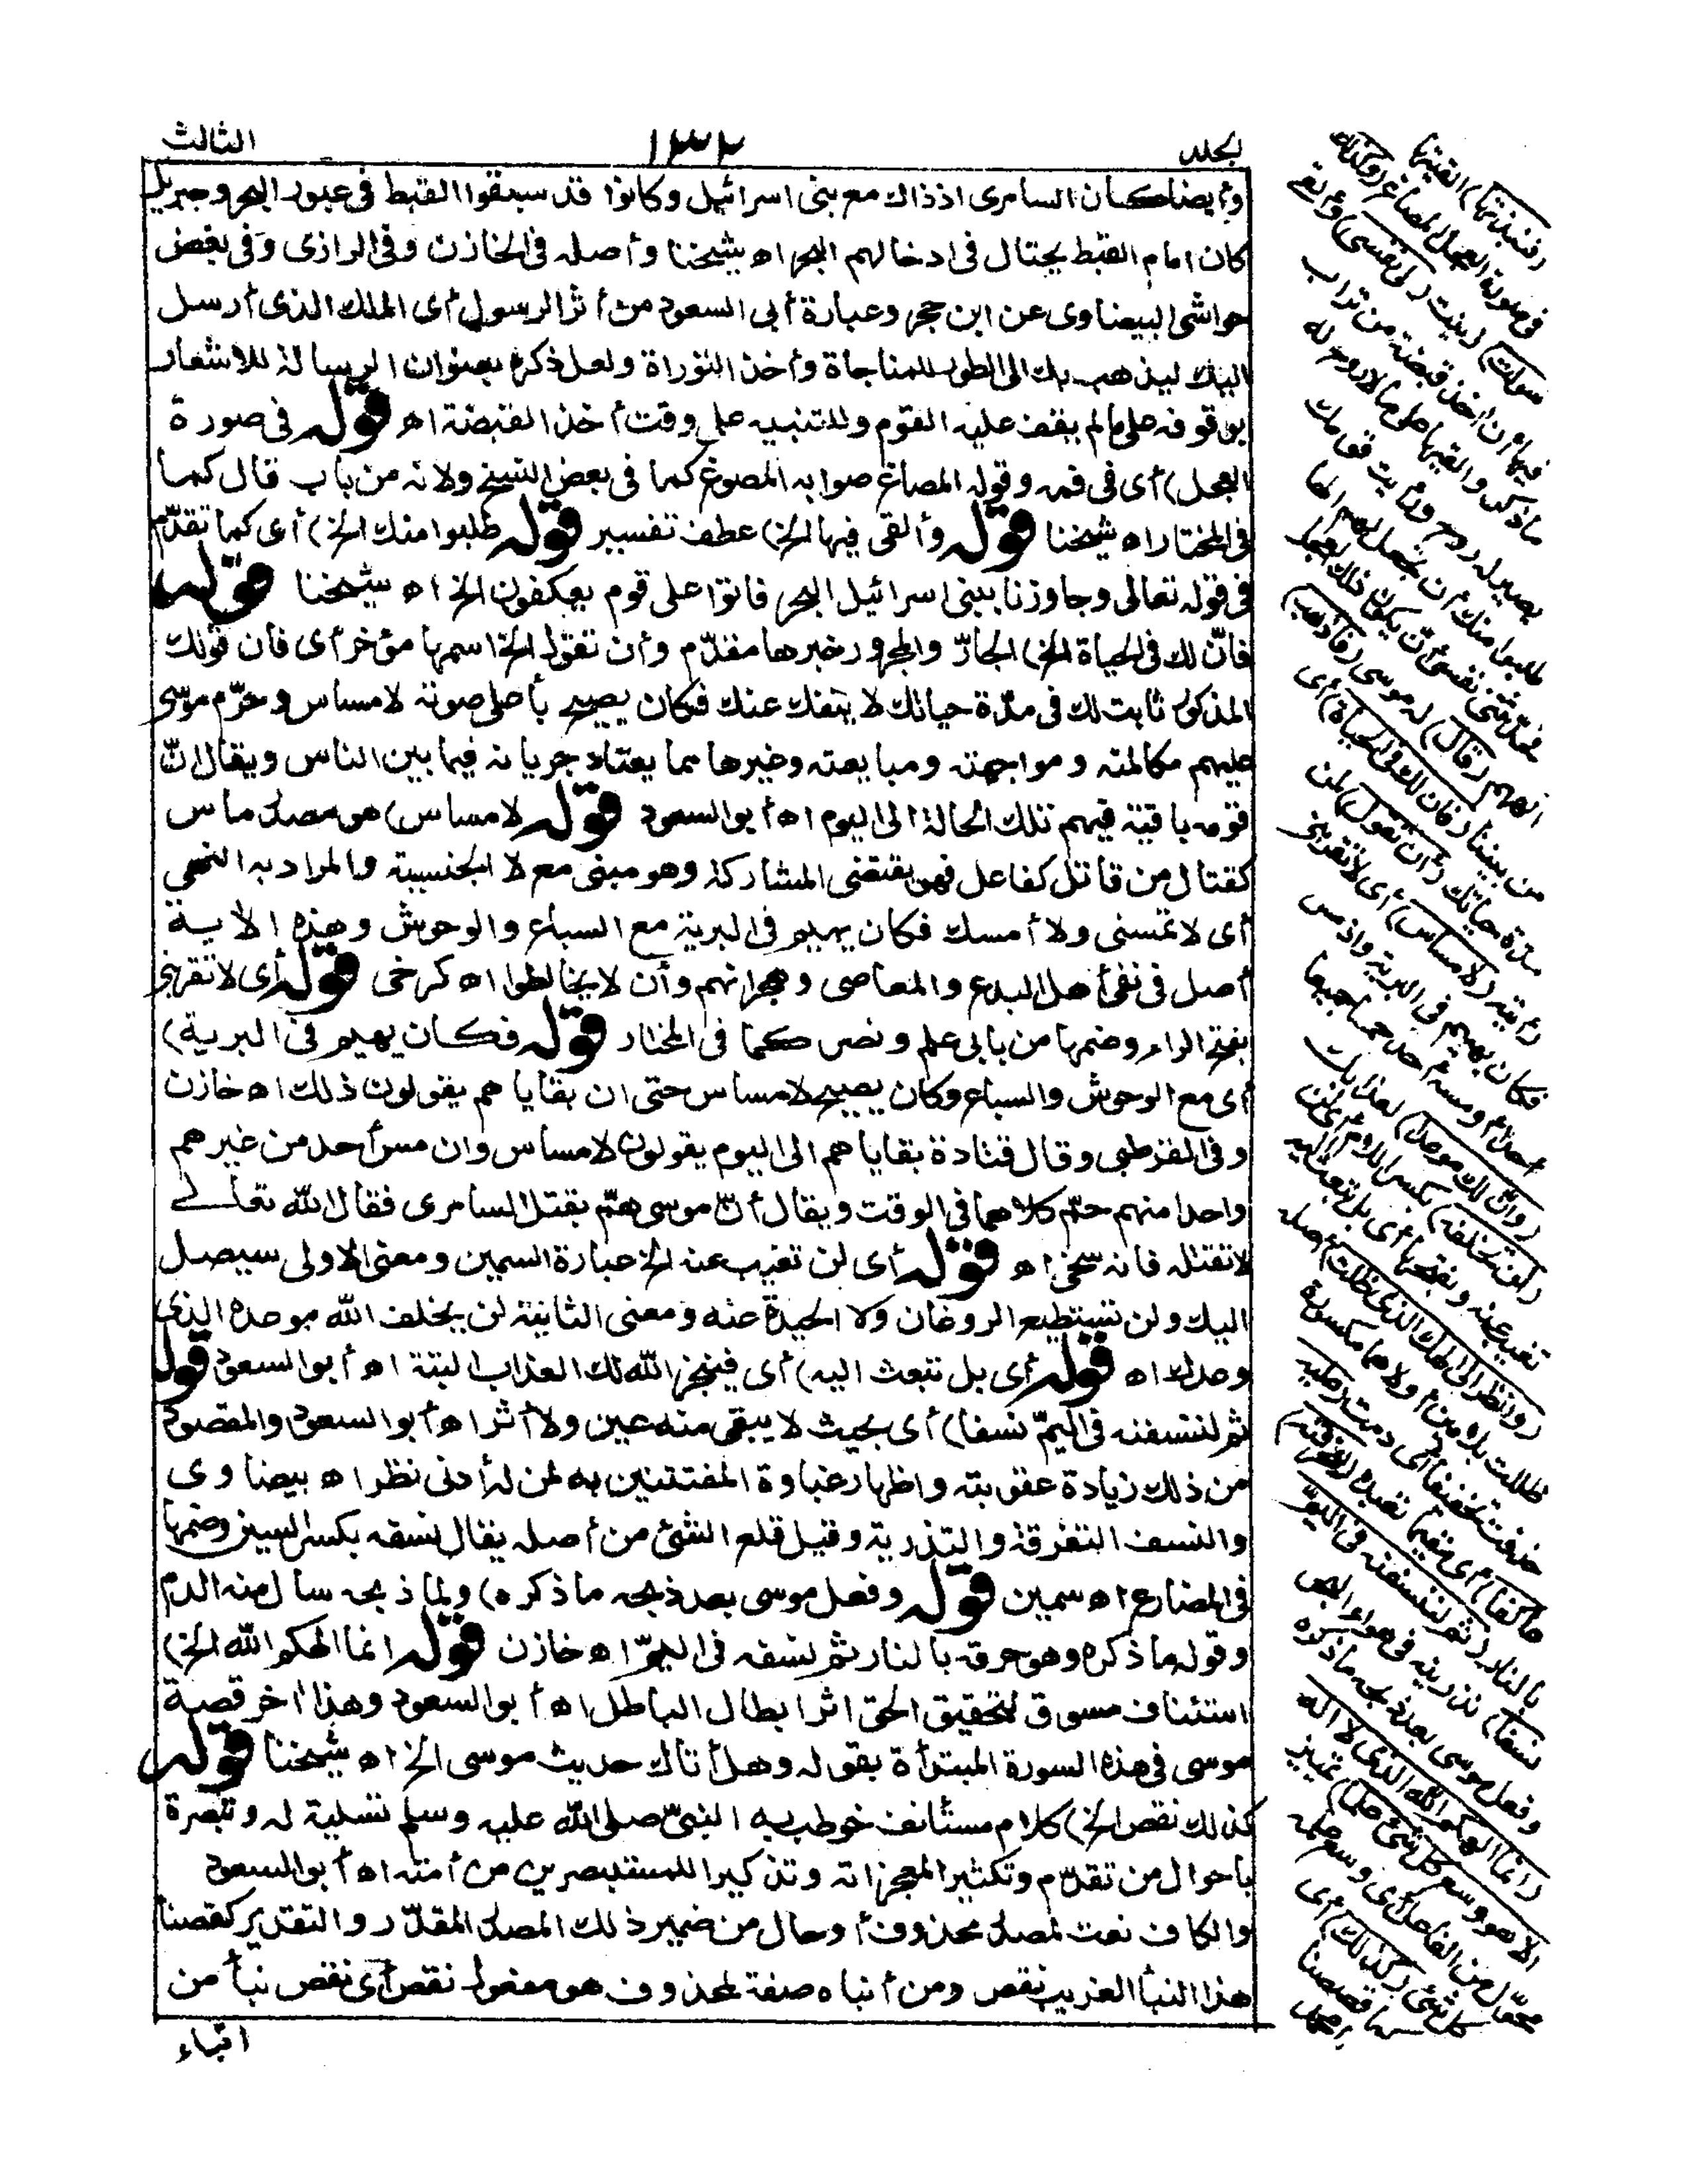 الجلد
١٣٢
الثالث
وأيضا كان السامرى اذ ذاك مع بنى اسرائيل وكانوا قد سبقوا القبط فى عبور البحر وجبريل
كان امام القبط يحتال فى ادخالهم البحر اه شيخنا وأصله فى الخازن وفى الرازى وفى بعض
حواشى البيضاوى عن ابن حجر وعبارة أبى السعود من أثر الرسول أى الملك الذى أرسل
اليك ليذهب بك الى الطور للمناجاة وأخذ التوراة ولعل ذكره بعنوان الرسالة للاشعار
بوقوفه على ما لم يقف عليه القوم وللتنبيه على وقت أخذ القبضة اه قوله فى صورة
العجل) أى فى فمه وقوله المصاغ صوابه المصوغ كما فى بعض النسخ ولانه من باب قال كما
فى المختار اه شيخنا قوله وألقى فيها الخ) عطف تفسير قوله طلبوا منك الخ) أى كما تقدّم
فى قوله تعالى وجاوزنا ببنى اسرائيل البحر فاتوا على قوم يعكفون الخ اه شيخنا قوله
فانّ لك فى الحياة الخ) الجارّ والمجرور خبرها مقدّم وأن تقول الخ اسمها مؤخر أى فان قولك
المذكور ثابت لك فى مدّة حياتك لا ينفك عنك فكان يصيح بأعلى صوته لا مساس وحرّم موسى
عليهم مكالمته ومواجهته ومبايعته وغيرها مما يعتاد جريانه فيما بين الناس ويقال انّ
قومه باقية فيهم تلك الحالة الى اليوم اه أبو السعود قوله لا مساس) هو مصدر ماس
كقتال من قاتل كفاعل فهو يقتضى المشاركة وهو مبنى مع لا الجنسية والمراد به النهى
أى لا تمسنى ولا أمسك فكان يهيم فى البرية مع السباع والوحوش وهذه الاية
أصل فى نفى أهل البدع والمعاصى وهجرانهم وأن لا يخالطوا اه كرخى قوله أى لا تقربنى
بفتح الراء وضمها من بابى علم ونصر كما فى المختار قوله فكان يهيم فى البرية)
أى مع الوحوش والسباع وكان يصيح لا مساس حتى ان بقاياهم يقولون ذلك اه خازن
وفى القرطبى وقال قتادة بقاياهم الى اليوم يقولون لا مساس وان مس أحد من غيرهم
واحدا منهم حمّ كلاهما فى الوقت ويقال أنّ موسى همّ بقتل السامرى فقال الله تعالى
لا تقتله فانه سخى اه قوله أى لن تغيب عنه الخ عبارة السمين ومعنى الاولى سيصل
اليك ولن تستطيع الروغان ولا الحيدة عنه ومعنى الثانية لن يخلف الله موعده الذى
وعدك اه قوله أى بل تبعث اليه) أى فينجز الله لك العذاب البتة اه أبو السعود قوله
ثم لننسفنه فى اليمّ نسفا) أى بحيث لا يبقى منه عين ولا أثر اه أبو السعود والمقصود
من ذلك زيادة عقوبته واظهار غباوة المفتتنين به لمن له أدنى نظر اه بيضاوى
والنسف التفرقة والتذرية وقيل قلع الشئ من أصله يقال نسفه بكسر السين وضمها
فى المضارع اه سمين قوله وفعل موسى بعد ذبحه ما ذكره) ولما ذبحه سال منه الدم
وقوله ما ذكره وهو حرقه بالنار ثم نسفه فى اليمّ اه خازن قوله انما الهكم الله الخ)
استئناف مسوق لتحقيق الحق اثر ابطال الباطل اه أبو السعود وهذا اخر قصة
موسى فى هذه السورة المبتدأة بقوله وهل أتاك حديث موسى الخ اه شيخنا قوله
كذلك نقص الخ) كلام مستأنف خوطب به النبىّ صلى الله عليه وسلم تسلية له وتبصرة
باحوال من تقدّم وتكثيرا لمعجزاته وتذكيرا للمستبصرين من أمته اه أبو السعود
والكاف نعت لمصدر محذوف أو حال من ضمير ذلك المصدر المقدّر والتقدير كقصنا
هذا النبأ الغريب نقص ومن أنباء صفة لمحذوف هو مفعول نقص أى نقص نبأ من
انباء
(فنبذتها) القيتها
فى صورة العجل المصاغ (وكذلك
سولت) زينت (لى نفسى) وألقى
فيها أن اخذ قبضة من تراب
ما ذكر والقيها على ما لا روح له
يصير له روح ورأيت قومك
طلبوا منك أن تجعل لهم الها
فحدّثتنى نفسى أن يكون ذلك العجل
الههم (قال) له موسى (فاذهب)
من بيننا (فان لك فى الحياة) أى
مدّة حياتك (أن تقول) لمن
رأيته (لا مساس) أى لا تقربنى
فكان يهيم فى البرية واذا مس
أحدا أو مسه أحد حما جميعا
(وانّ لك موعدا) لعذابك
(لن تخلفه) بكسر اللام أى لن
تغيب عنه وبفتحها أى بل تبعث اليه
(وانظر الى الهك الذى ظلت) أصله
ظللت بلامين أولاهما مكسورة
حذفت تخفيفا أى دمت (عليه
عاكفا) أى مقيما تعبده (لنحرقنه)
بالنار (ثم لننسفنه فى اليمّ
نسفا) نذرينه فى هواء البحر
وفعل موسى بعد ذبحه ما ذكره
(انما الهكم الله الذى لا اله
الا هو وسع كل شئ علما) تمييز
محوّل عن الفاعل أى وسع علمه
كل شئ (كذلك) أى